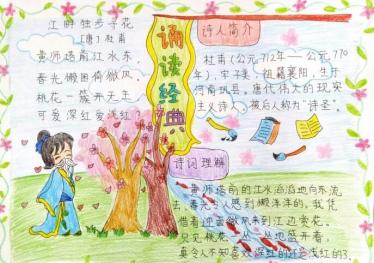 江畔独步寻花
[唐] 杜甫
黄师塔前江水东，
春光懒困倚微风。
桃花一簇开无主，
可爱深红爱浅红？
诵读经典
诗人简介
杜甫(公元712年—公元770
年)，字子美，祖籍襄阳，生于
河南巩县。唐代伟大的现实
主义诗人，被后人称为“诗圣”。
诗词理解
黄师塔前的江水滔滔地向东流
去，春光令人感到懒洋洋的，我凭
借着迎面微风来到江边赏花。
只见桃花一丛一丛地盛开着，
真令人不知喜欢深红的还是浅红的了。